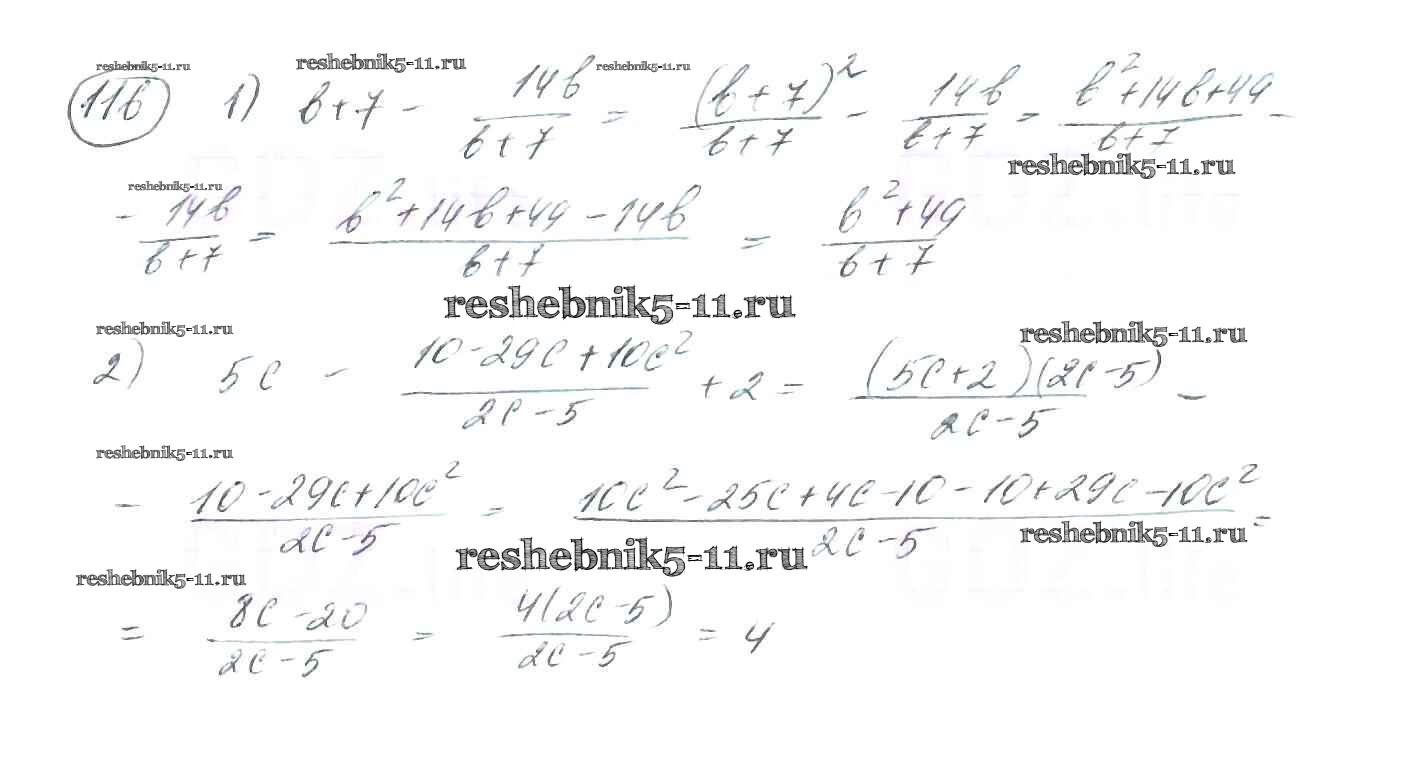 reshebnik5-11.ru reshebnik5-11.ru reshebnik5-11.ru
116 1) b+7 - 14b/(b+7) = (b+7)²/(b+7) - 14b/(b+7) = (b²+14b+49)/(b+7) -
reshebnik5-11.ru
reshebnik5-11.ru
- 14b/(b+7) = (b²+14b+49-14b)/(b+7) = (b²+49)/(b+7)
reshebnik5-11.ru
reshebnik5-11.ru reshebnik5-11.ru
2) 5c - (10-29c+10c²)/(2c-5) + 2 = (5c+2)(2c-5)/(2c-5) -
reshebnik5-11.ru
- (10-29c+10c²)/(2c-5) = (10c²-25c+4c-10-10+29c-10c²)/(2c-5) =
reshebnik5-11.ru reshebnik5-11.ru
reshebnik5-11.ru
= (8c-20)/(2c-5) = 4(2c-5)/(2c-5) = 4